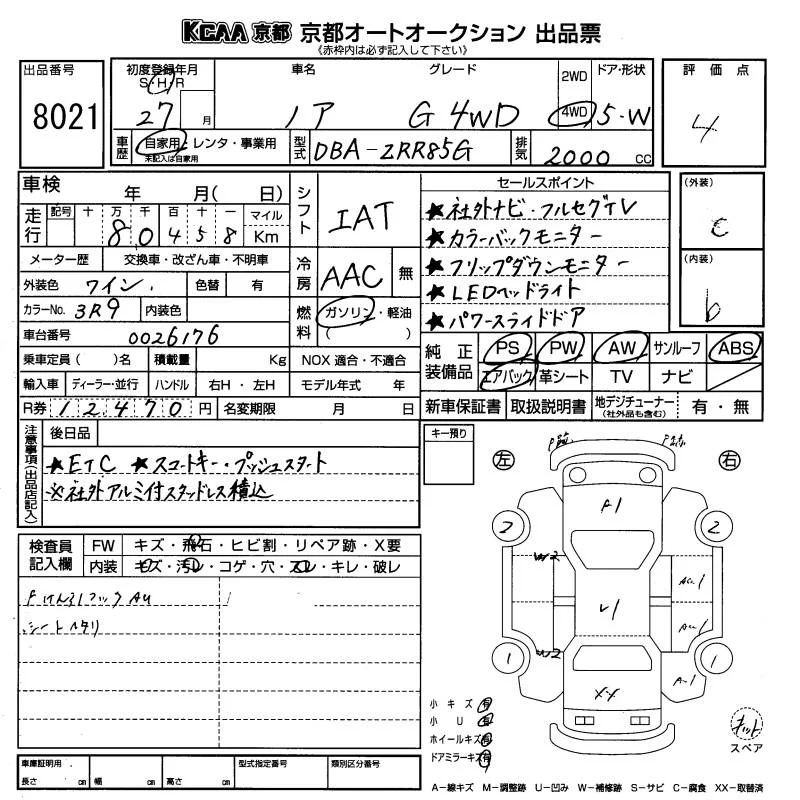 KCAA 京都 京都オートオークション 出品票
《赤枠内は必ず記入して下さい》
出品番号 8021
初度登録年月 S・H・R 27 月
車名 ノア
グレード G 4WD
2WD 4WD
ドア・形状 5・W
評価点 4
車歴 自家用・レンタ・事業用 未記入は自家用
型式 DBA-ZRR85G
排気 2000 CC
車検 年 月( 日)
走行 記号 十 万 千 百 十 一 マイル
80458 Km
メーター歴 交換車・改ざん車・不明車
外装色 ワイン 色替 有
カラーNo. 3R9 内装色
車台番号 0026176
乗車定員 ( )名 積載量 Kg NOX 適合・不適合
輸入車 ディーラー・並行 ハンドル 右H・左H モデル年式 年
R券 12470円 名変期限 月 日
シフト IAT
冷房 AAC 無
燃料 ガソリン・軽油 ( )
セールスポイント
★社外ナビ・フルセグTV
★カラーバックモニター
★フリップダウンモニター
★LEDヘッドライト
★パワースライドドア
(外装) C
(内装) b
純正装備品 PS PW AW サンルーフ ABS
エアバック 革シート TV ナビ
新車保証書 取扱説明書 地デジチューナー (社外品も含む) 有・無
注意事項(出品店記入)
後日品
★ETC ★スマートキー・プッシュスタート
※社外アルミ付スタッドレス積込
キー預り
左 右
検査員記入欄
FW キズ・飛石・ヒビ割・リペア跡・X要
内装 キズ・汚レ・コゲ・穴・スレ・キレ・破レ
シートヘタリ
A1
2 2
W2
A1
V1
1 1
W2
A-1
XX
小キズ 有
小U 有
ホイールキズ 有
ドアミラーキズ 有
キット
スペア
車庫証明用 長さ cm 幅 cm 高さ cm
型式指定番号
類別区分番号
A−線キズ M−調整跡 U−凹み W−補修跡 S−サビ C−腐食 XX−取替済